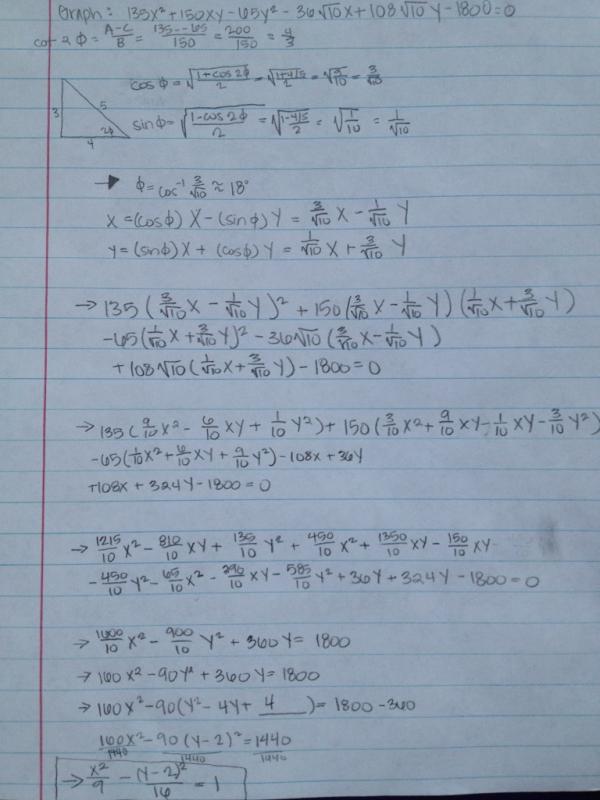 Graph: 135x² + 150xy - 65y² - 36√10x + 108√10y - 1800 = 0
cot 2ϕ = A-C/B = 135--65/150 = 200/150 = 4/3
cosϕ = √(1+cos2ϕ/2) = √(1+4/5/2) = √(9/10) = 3/√10
3 5 2ϕ 4
sinϕ = √(1-cos2ϕ/2) = √(1-4/5/2) = √(1/10) = 1/√10
→ ϕ = cos⁻¹ 3/√10 ≈ 18°
X = (cosϕ) X - (sinϕ) Y = 3/√10 X - 1/√10 Y
Y = (sinϕ) X + (cosϕ) Y = 1/√10 X + 3/√10 Y
→ 135 (3/√10 X - 1/√10 Y)² + 150 (3/√10 X - 1/√10 Y) (1/√10 X + 3/√10 Y)
-65 (1/√10 X + 3/√10 Y)² - 36√10 (3/√10 X - 1/√10 Y)
+ 108√10 (1/√10 X + 3/√10 Y) - 1800 = 0
→ 135 (9/10 X² - 6/10 XY + 1/10 Y²) + 150 (3/10 X² + 9/10 XY - 1/10 XY - 3/10 Y²)
-65 (1/10 X² + 6/10 XY + 9/10 Y²) - 108x + 36Y
+108x + 324Y - 1800 = 0
→ 1215/10 X² - 810/10 XY + 135/10 Y² + 450/10 X² + 1350/10 XY - 150/10 XY
- 450/10 Y² - 65/10 X² - 390/10 XY - 585/10 Y² + 36Y + 324Y - 1800 = 0
→ 1600/10 X² - 900/10 Y² + 360Y = 1800
→ 160X² - 90Y² + 360Y = 1800
→ 160X² - 90(Y² - 4Y + 4) = 1800 - 360
160X²/1440 - 90(Y-2)²/1440 = 1440/1440
→ X²/9 - (Y-2)²/16 = 1